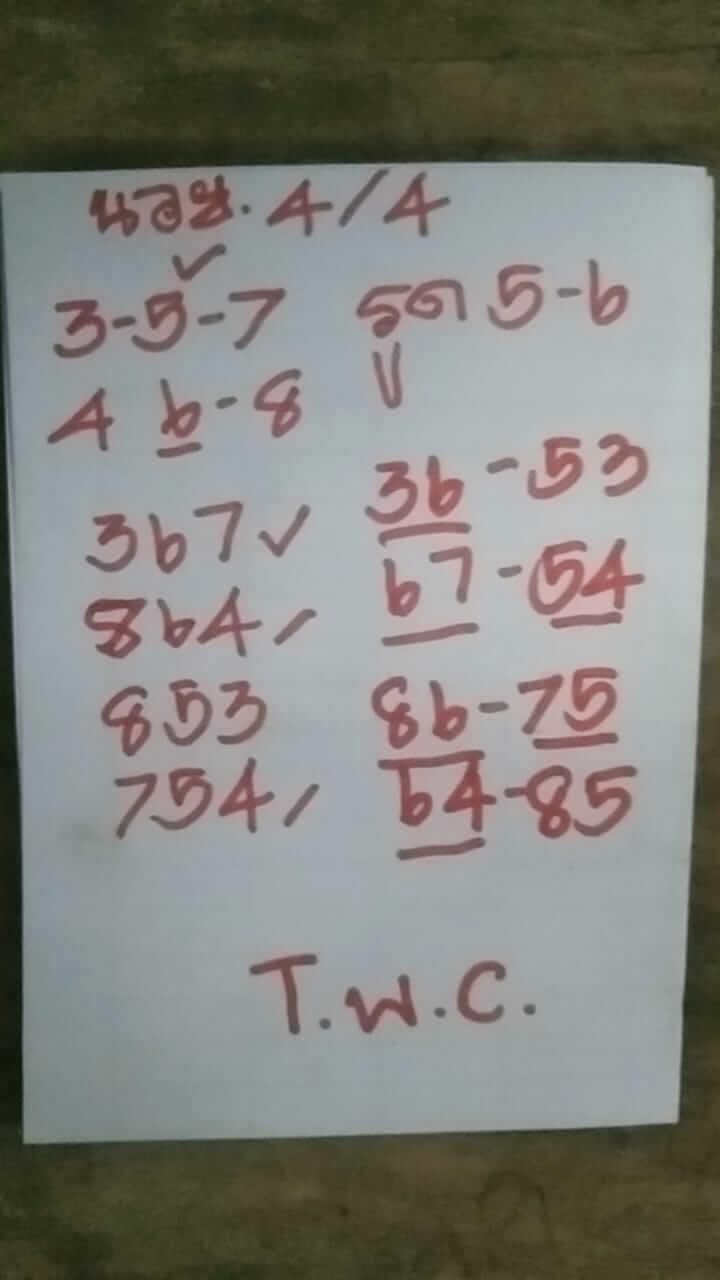 นอย. 4/4
3-5-7 รูด 5-6
4 6-8
367 36-53
864 67-54
853 86-75
754 64-85
T.W.C.